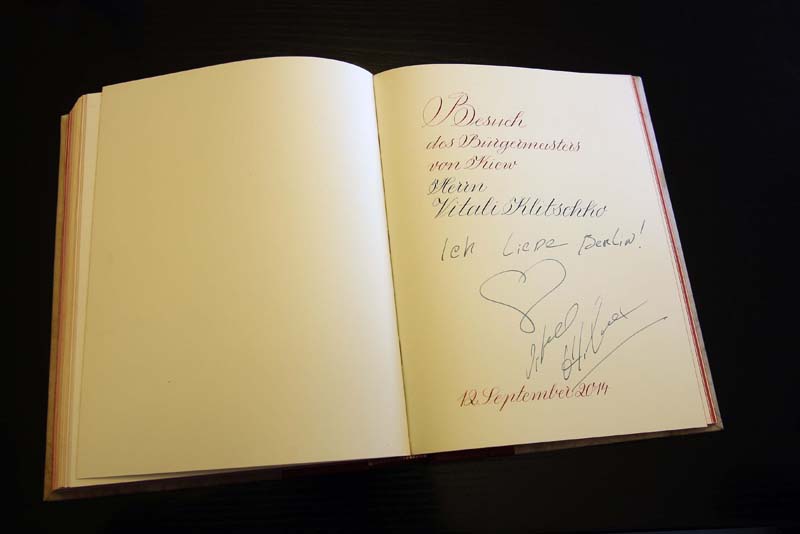 Besuch
des Bürgermeisters
von Kiew
Herrn
Vitali Klitschko
Ich Liebe Berlin!
12. September 2014